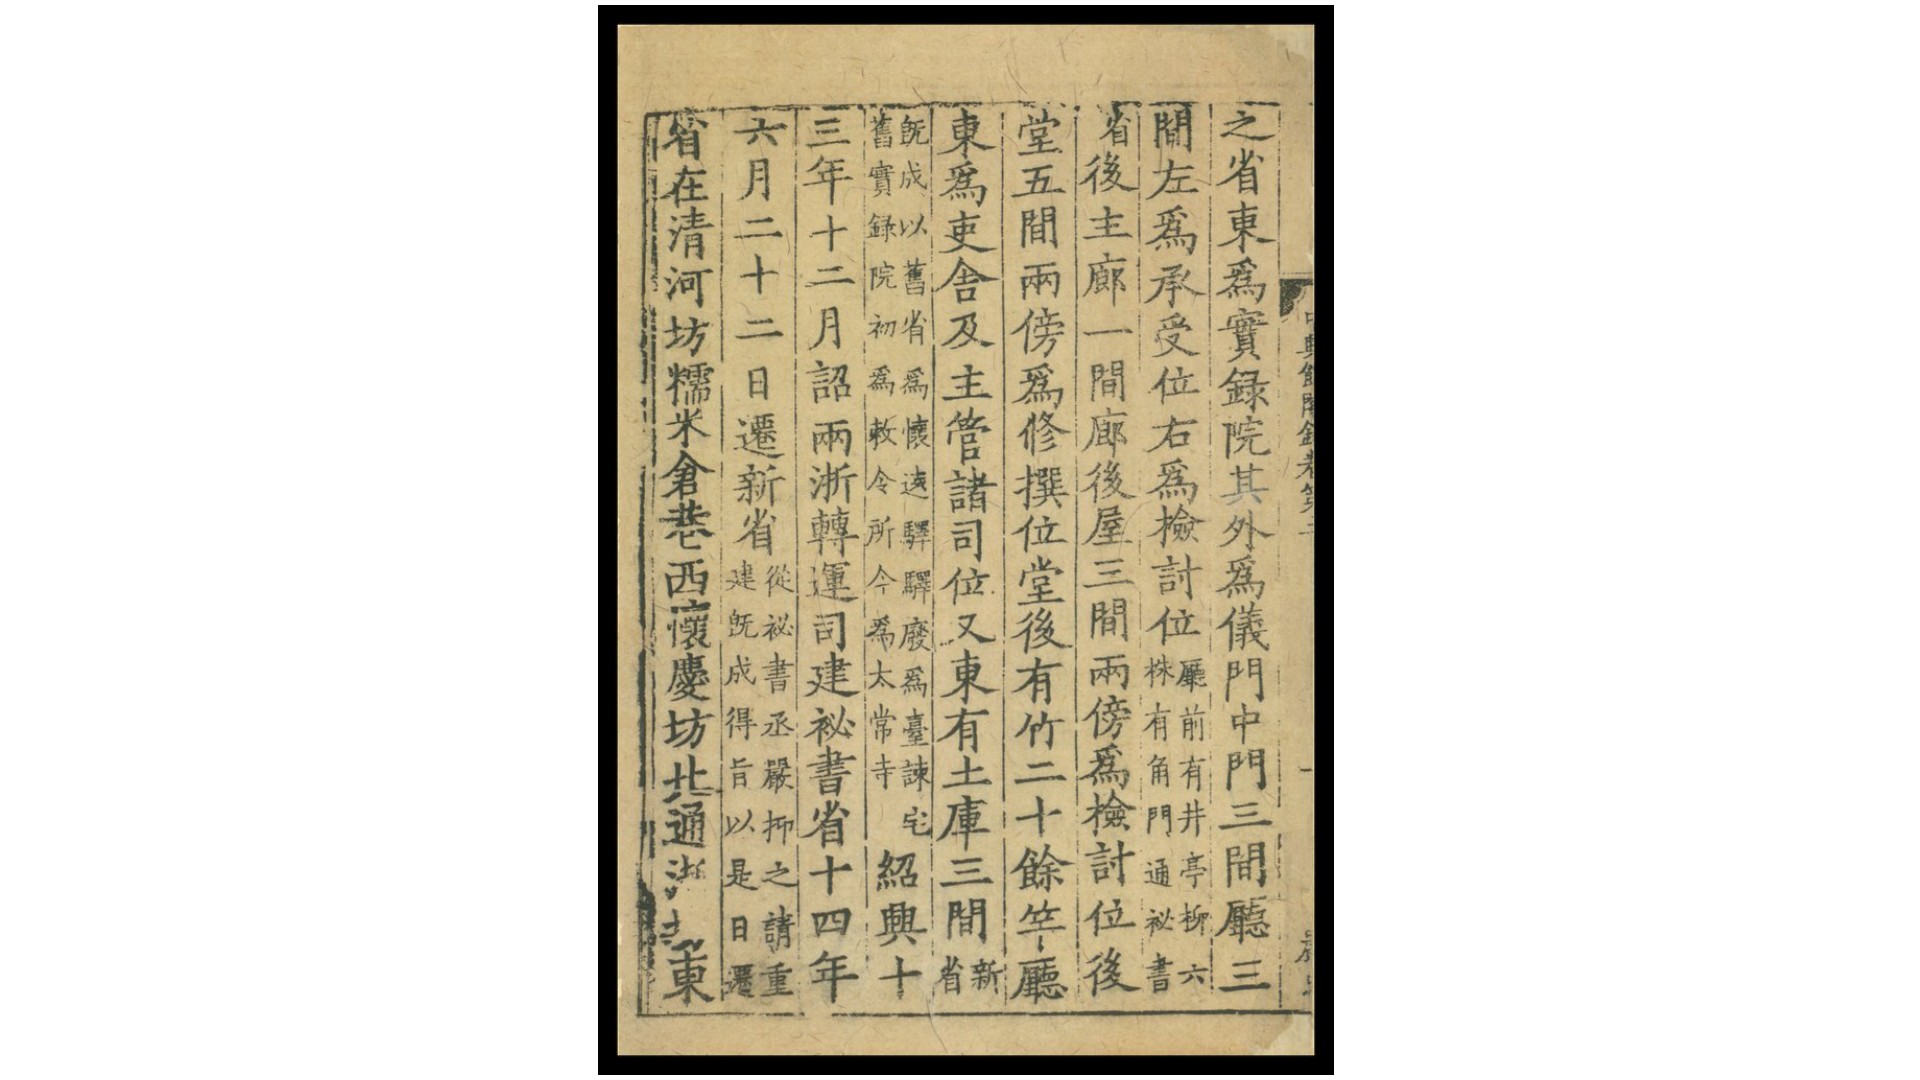 中興館閣錄卷第二
之省東爲實録院其外爲儀門中門三間廳三
間左爲承受位右爲檢討位廳前有井亭柳六株有角門通祕書
省後主廊一間廊後屋三間兩傍爲檢討位後
堂五間兩傍爲修撰位堂後有竹二十餘竿廳
東爲吏舍及主管諸司位又東有土庫三間新省
旣成以舊省爲懷遠驛驛廢爲臺諫宅舊實録院初爲敕令所今爲太常寺紹興十
三年十二月詔兩浙轉運司建祕書省十四年
六月二十二日遷新省從祕書丞嚴抑之請重建旣成得旨以是日遷
省在清河坊糯米倉巷西懷慶坊北通浙東